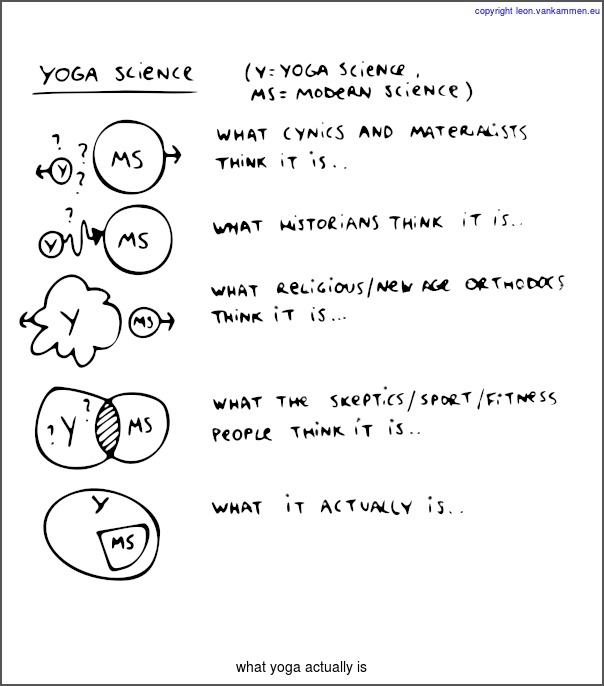 copyright leon.vankammen.eu
YOGA SCIENCE (Y=YOGA SCIENCE,
MS= MODERN SCIENCE)
? ? ? Y MS
WHAT CYNICS AND MATERIALISTS
THINK IT IS..
? Y MS
WHAT HISTORIANS THINK IT IS..
Y MS
WHAT RELIGIOUS/NEW AGE ORTHODOCS
THINK IT IS...
? Y ? MS
WHAT THE SKEPTICS/SPORT/FITNESS
PEOPLE THINK IT IS..
Y
MS
WHAT IT ACTUALLY IS..
what yoga actually is